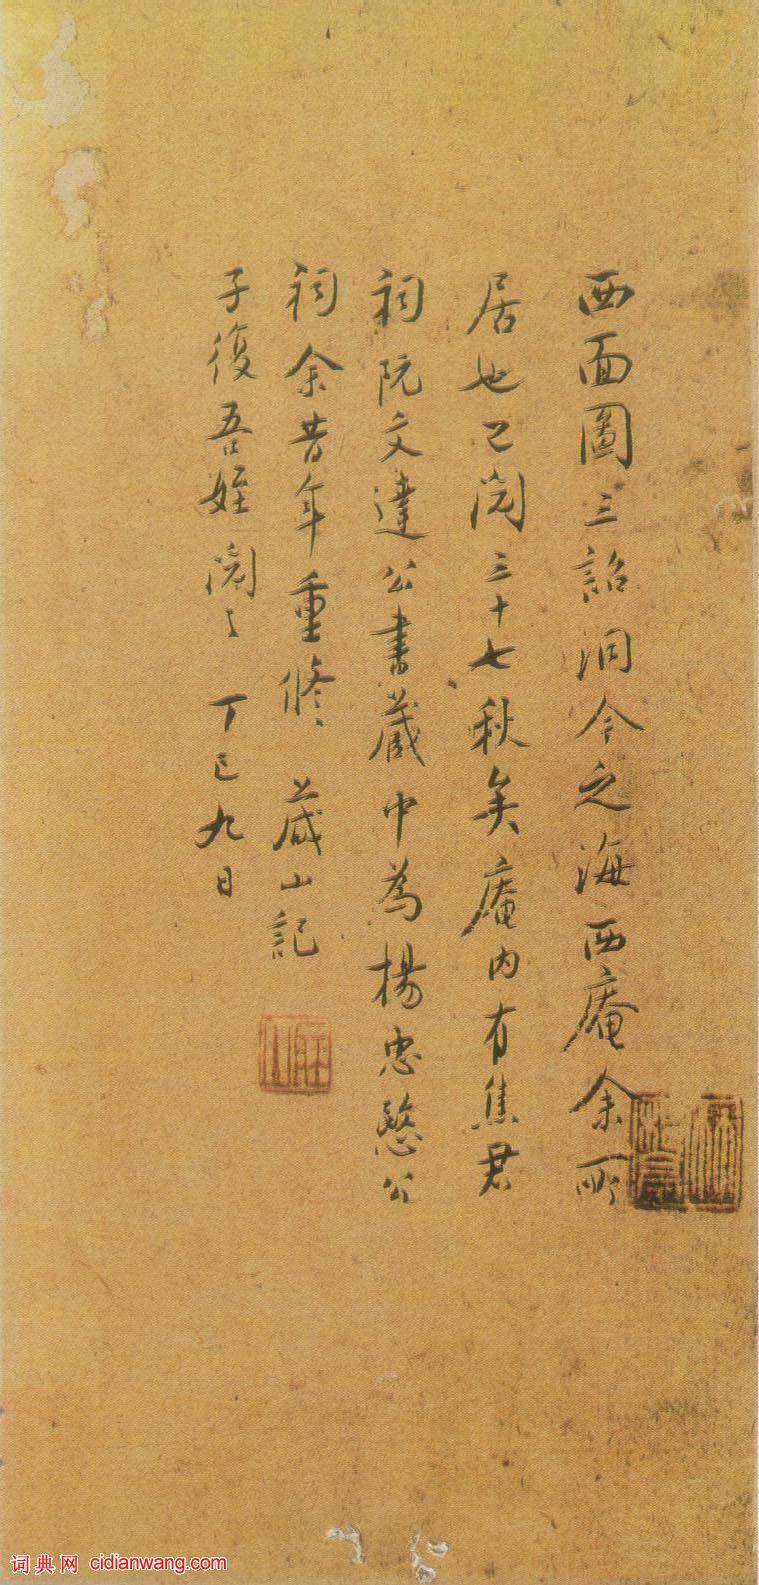 西面圖三詔洞今之海西庵余所
居也已閱三十七秋矣庵內有焦君
祠阮文達公書藏中為楊忠愍公
祠余昔年重修 蕺山記
子復吾姪閱之 丁巳九日
词典网 cidianwang.com